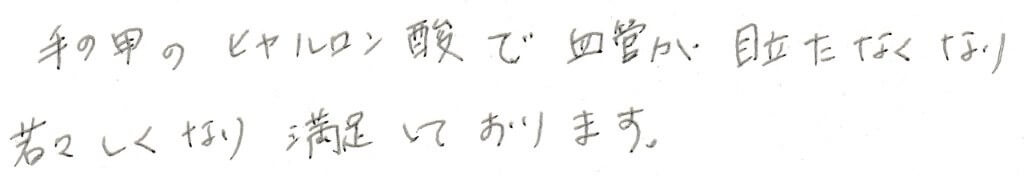 手の甲のヒヤルロン酸で血管が目立たなくなり
若々しくなり満足しております。